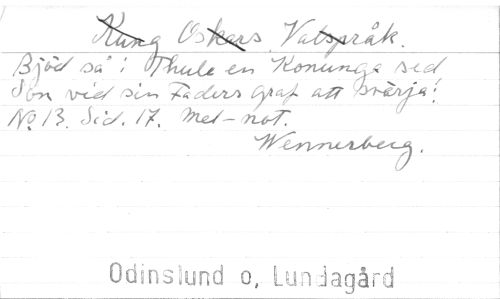 Kung Oskars Valspråk.
Bjöd så i Thule en Konunga sed
Son vid sin Faders graf att svärja!
No 13. Sid. 17. Mel-not.
Wennerberg.
Odinslund o, Lundagård